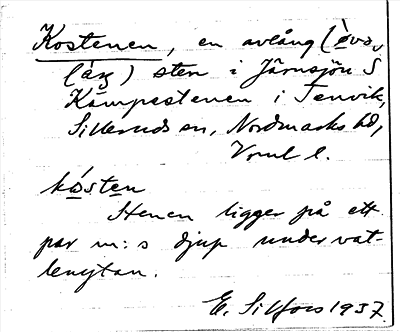 Kostenen, en avlång (òvə,
låŋ) sten i Järnsjön S
Kämpestenen i Tenvik,
Silleruds sn, Nordmarks hd,
Vrml l.
kåsten
Stenen ligger på ett
par m:s djup under vat-
tenytan.
E. Silfors 1937.